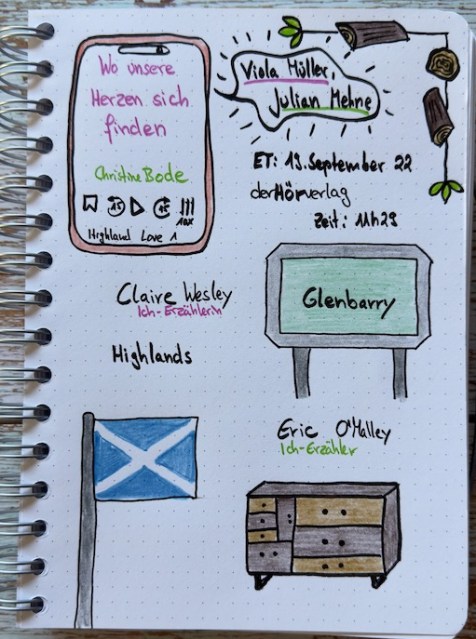 Wo unsere
Herzen sich
finden
Christine Bode
15
15
1.0x
Highland Love 1
Viola Müller,
Julian Mehne
ET: 19. September 22
derHörverlag
Zeit: 11h29
Claire Wesley
Ich-Erzählerin
Highlands
Glenbarry
Eric O'Malley
Ich-Erzähler